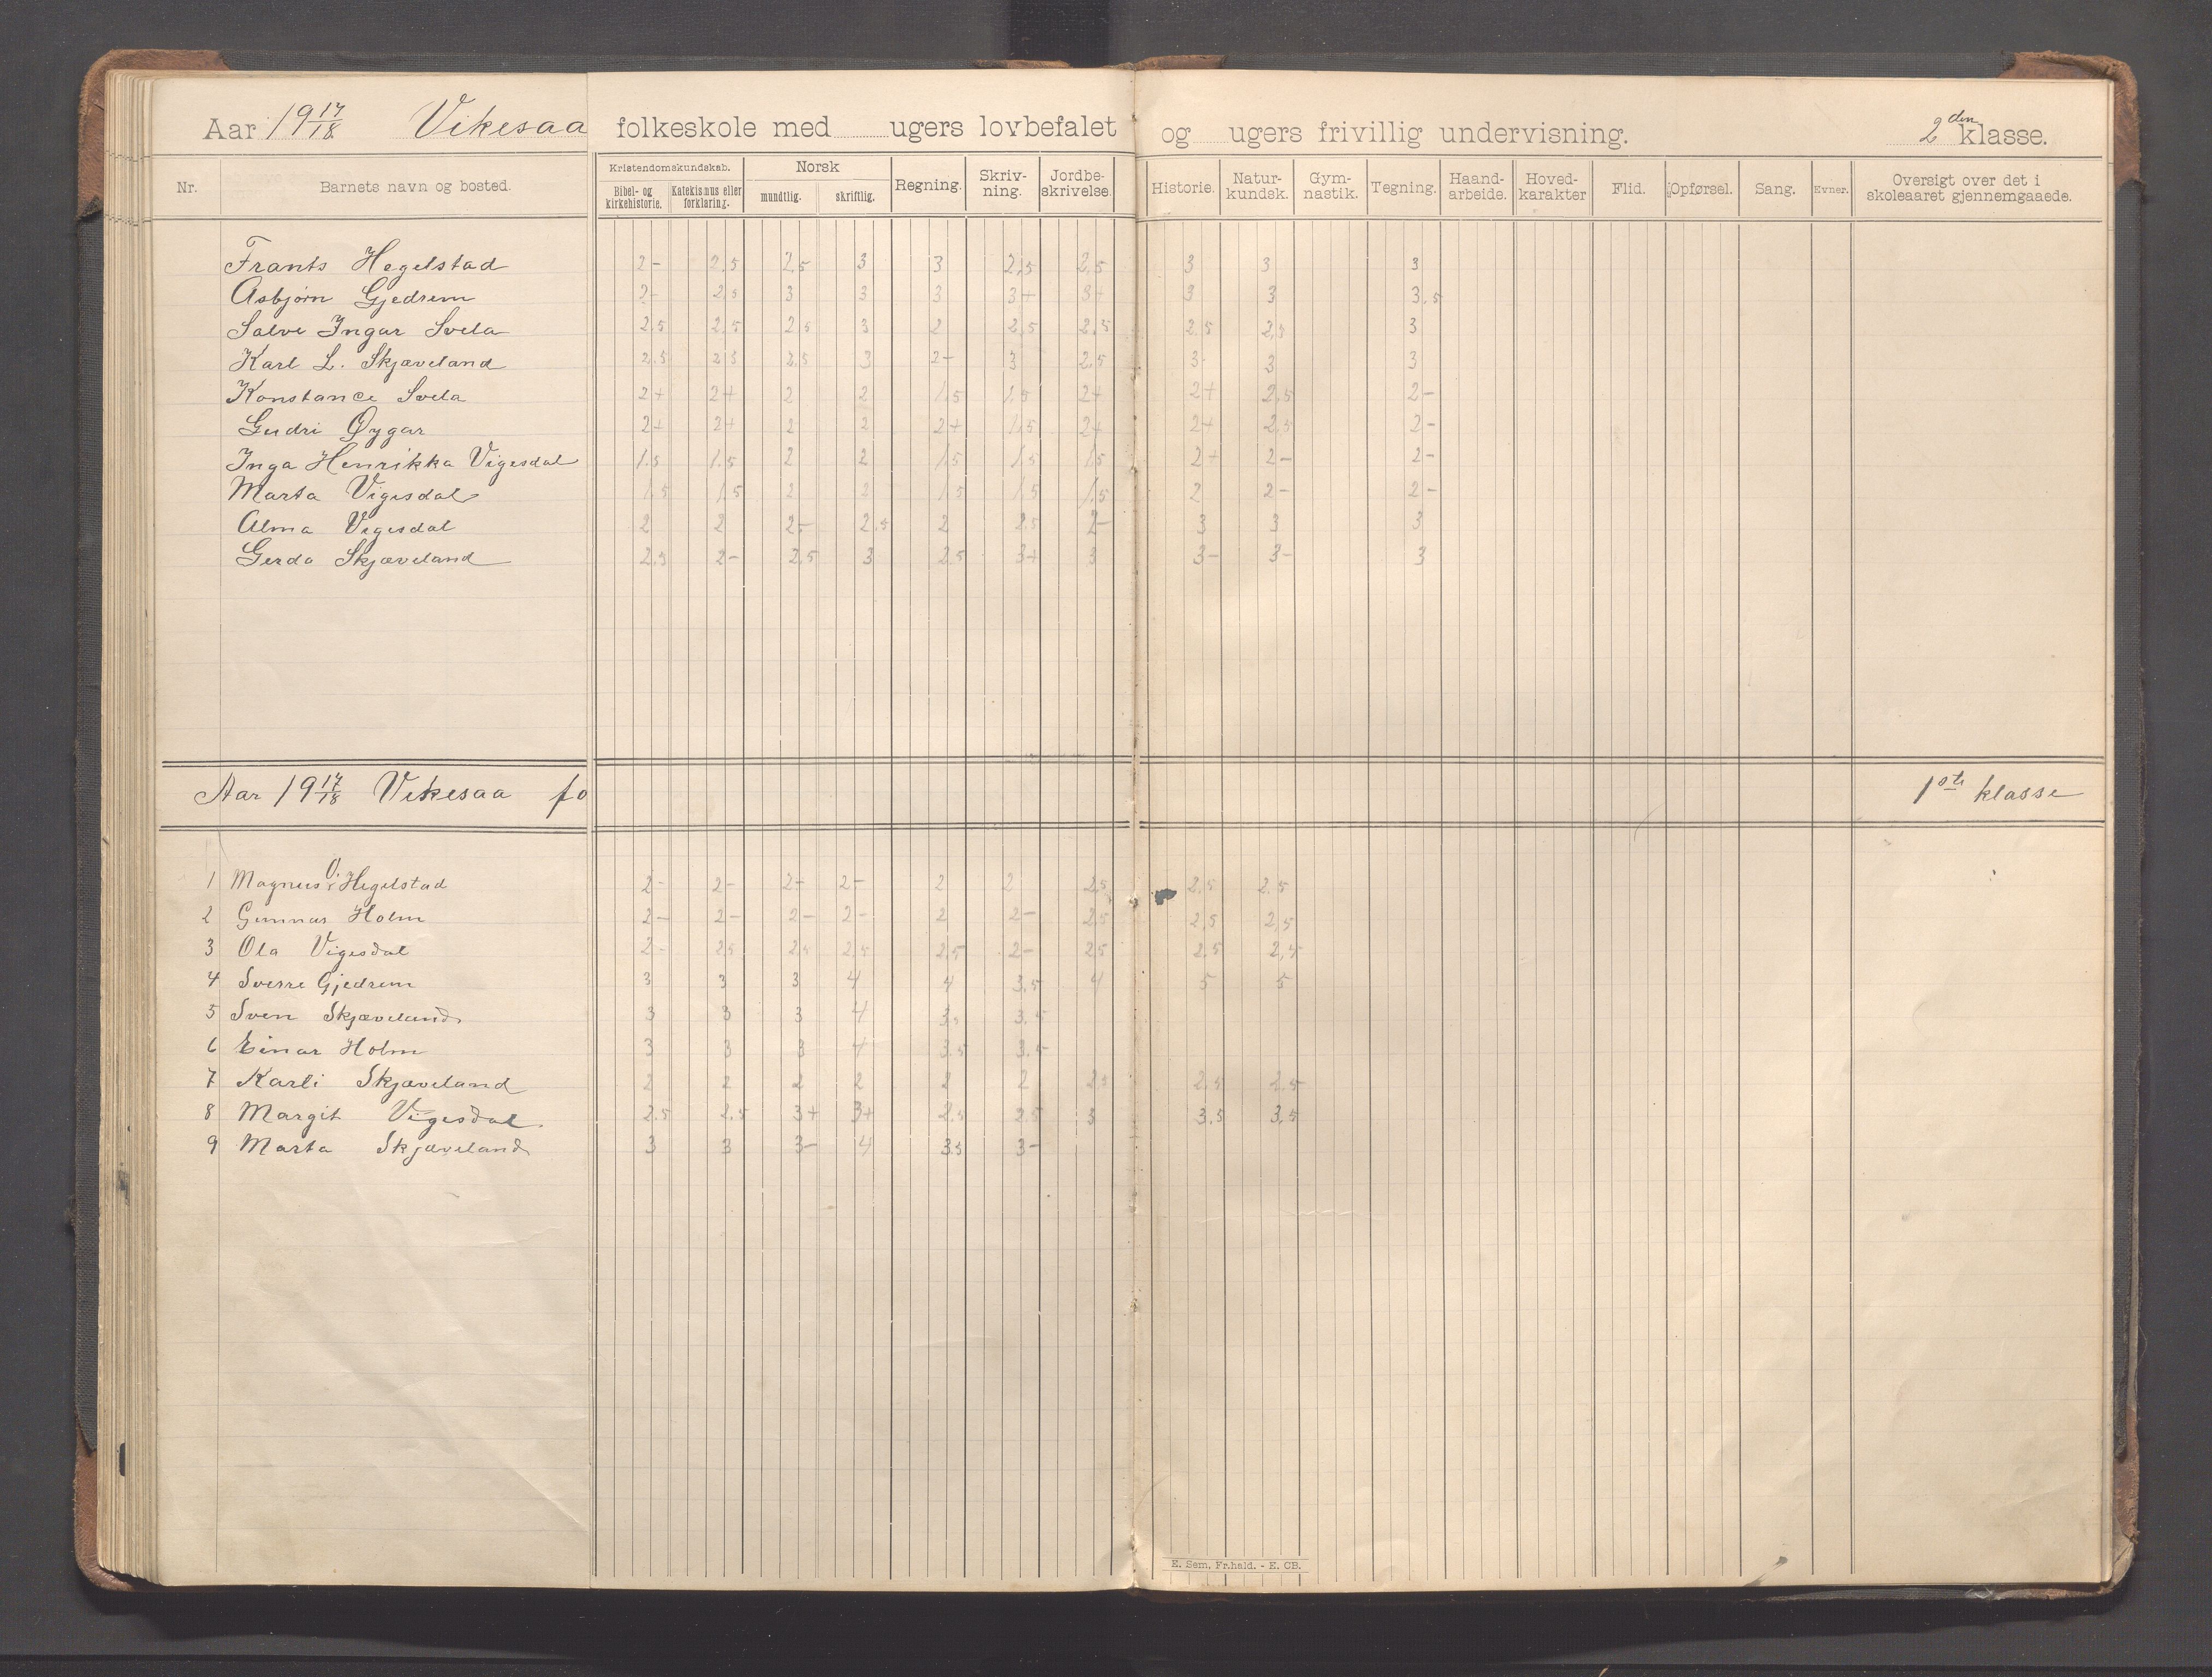 Aar 19 17/18 Vikesaa folkeskole med ugers lovbefalet og ugers frivillig undervisning. 2den klasse.
Nr. Barnets navn og bosted. Kristendomskundskab. Bibel- og kirkehistorie. Katekismus eller forklaring. Norsk mundtlig. skriftlig. Regning. Skriv-ning. Jordbe-skrivelse. Historie. Natur-kundsk. Gym-nastik. Tegning. Haand-arbeide. Hoved-karakter Flid. Opførsel. Sang. Evner. Oversigt over det i skoleaaret gjennemgaaede.
Frants Hegelstad 2- 2,5 2,5 3 3 2,5 2,5 3 3 3
Asbjørn Gjedrem 2- 2,5 3 3 3 3+ 3+ 3 3 3,5
Salve Ingar Svela 2,5 2,5 2,5 3 2 2,5 2,5 2,5 2,5 3
Karl L. Skjæveland 2,5 2,5 2,5 3 2- 3 2,5 3- 3 3
Konstance Svela 2+ 2+ 2 2 1,5 1,5 2+ 2+ 2,5 2-
Gudri Øygar 2+ 2+ 2 2 2+ 1,5 2+ 2+ 2,5 2-
Inga Henrikka Vigesdal 1.5 1.5 2 2 1,5 1,5 1,5 2+ 2- 2-
Marta Vigesdal 1,5 1,5 2 2 1,5 1,5 1,5 2 2- 2-
Alma Vigesdal 2 2 2- 2,5 2 2,5 2- 3 3 3
Gerda Skjæveland 2,5 2- 2,5 3 2,5 3+ 3 3- 3- 3
Aar 19 17/18 Vikesaa fo 1ste klasse
1 Magnus O. Hegelstad 2- 2- 2- 2- 2 2 2,5 2,5 2,5
2 Gunnar Holm 2- 2- 2- 2- 2 2- 2,5 2,5 2,5
3 Ola Vigesdal 2- 2,5 2,5 2,5 2,5 2- 2,5 2,5 2,5
4 Sverre Gjedrem 3 3 3 4 4 3,5 4 5 5
5 Sven Skjæveland 3 3 3 4 3,5 3,5
6 Einar Holm 3 3 3 4 3,5 3,5
7 Karli Skjæveland 2 2 2 2 2 2 2,5 2,5 2,5
8 Margit Vigesdal. 2,5 2,5 3+ 3+ 2,5 2,5 3 3,5 3,5
9 Marta Skjæveland 3 3 3- 4 3,5 3-
E. Sem, Fr.hald. - E. CB.